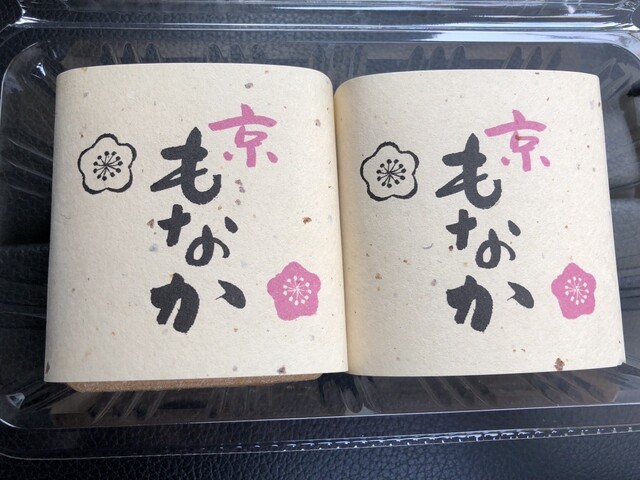 京
もなか
京
もなか